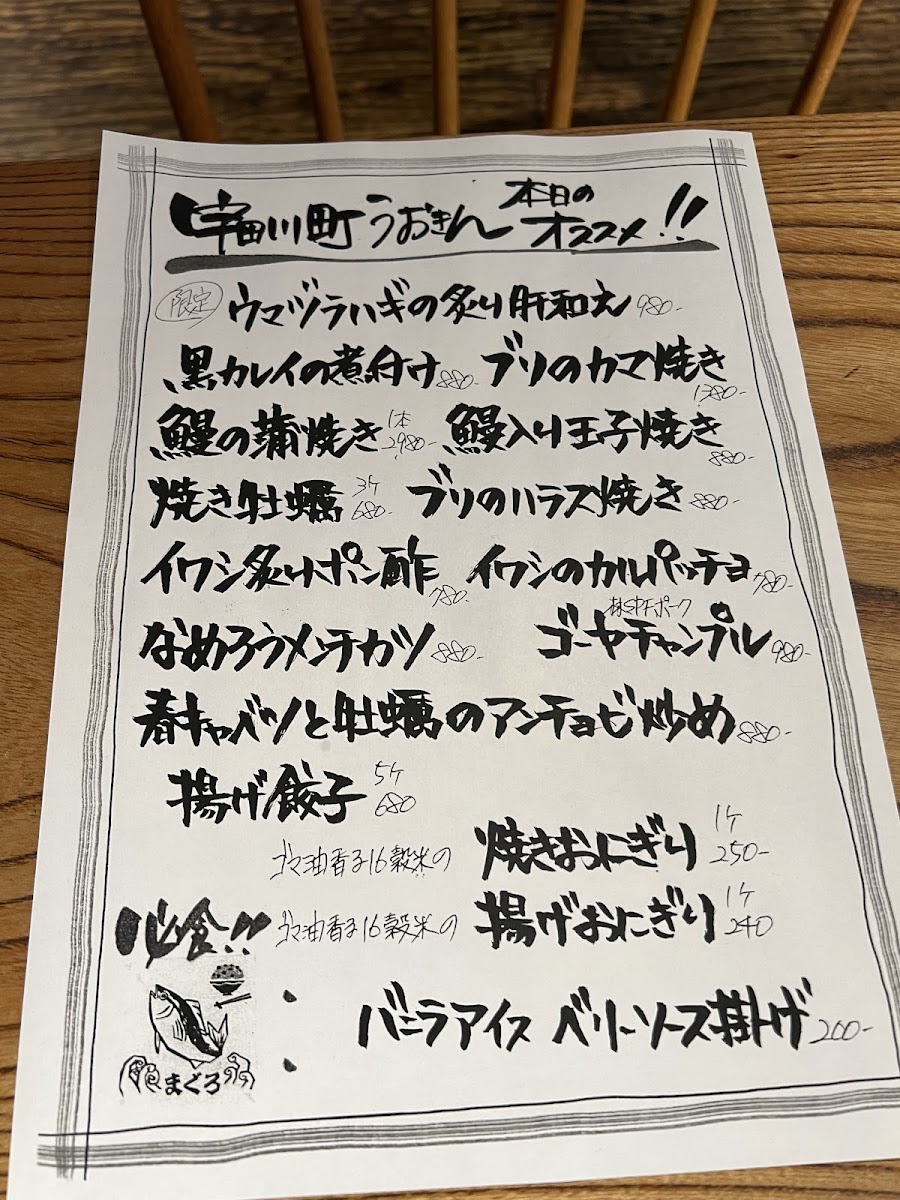 宇田川町 うおきん 本日の オススメ!!
限定 ウマヅラハギの炙り肝和え 980-
黒カレイの煮付け 880- ブリのカマ焼き 1380-
鰻の蒲焼き 1本 2980- 鰻入り玉子焼き 880-
焼き牡蠣 3ケ 680- ブリのハラス焼き 880-
イワシ炙りポン酢 780- イワシのカルパッチョ 780-
なめろうメンチカツ 880- ゴーヤチャンプル 980-
春キャベツと牡蠣のアンチョビ炒め 880-
揚げ餃子 5ケ 680
ゴマ油香る16穀米の 焼きおにぎり 1ケ 250-
必食!! ゴマ油香る16穀米の 揚げおにぎり 1ケ 240
バニラアイス ベリーソース掛け 200-
まぐろ